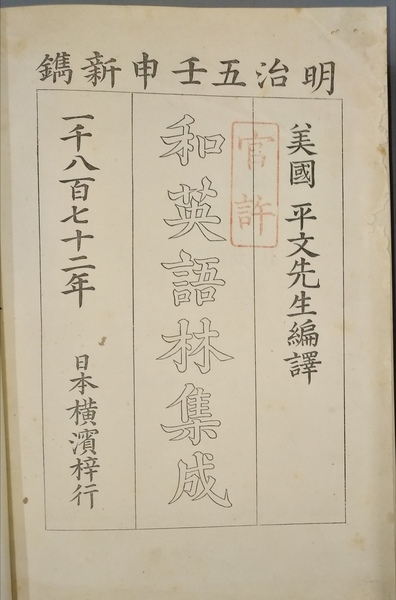 明治五壬申新鐫
美國 平文先生編譯
官許
和英語林集成
一千八百七十二年
日本橫濱梓行